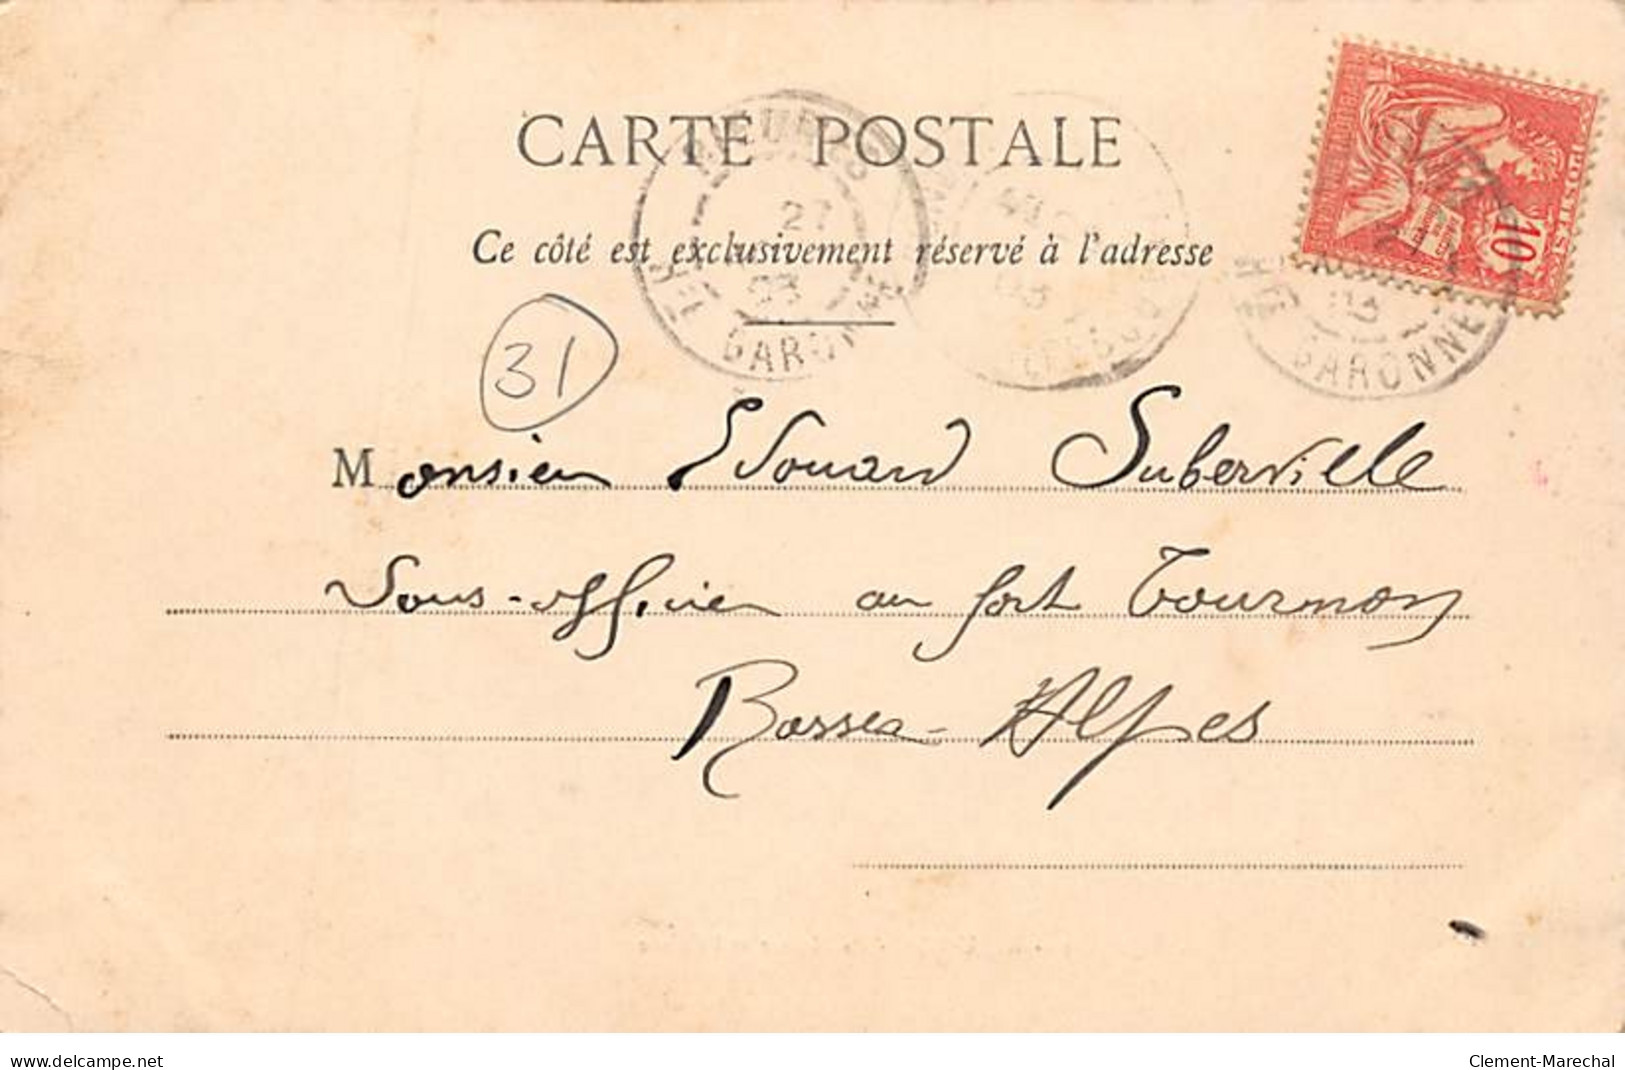 CARTE POSTALE
Ce côté est exclusivement réservé à l'adresse
27
03
GARONNE
GARONNE
POSTES
10
31
Monsieur Edouard Suberville
Sous-officier au fort Tournon
Basses-Alpes
www.delcampe.net
Clement-Marechal